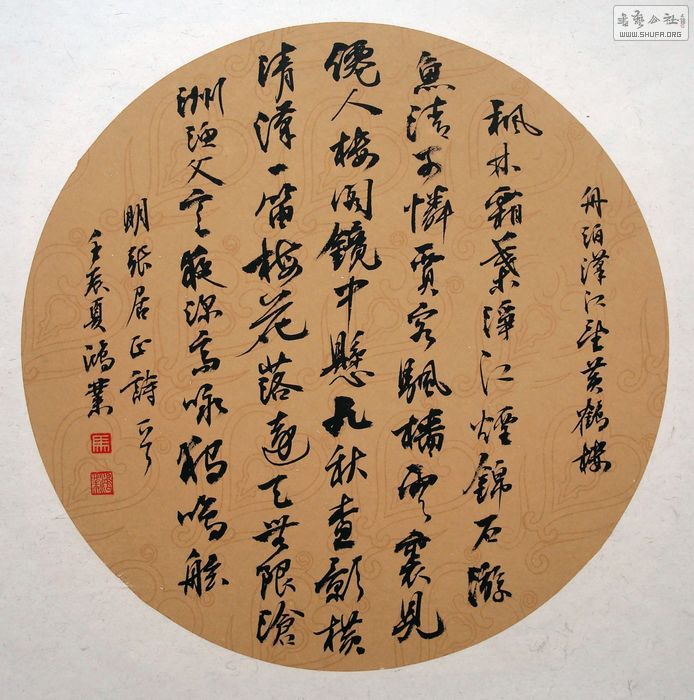 舟泊漢江望黃鶴樓
楓林霜葉淨江煙錦石游
魚清可憐賈客颿檣雲裏見
僊人樓閣鏡中懸九秋查影橫
清漢一笛梅花落遠天無限滄
洲漁父意夜深高咏獨鳴舷
明張居正詩一首
壬辰夏鴻業
書藝公社
WWW.SHUFA.ORG